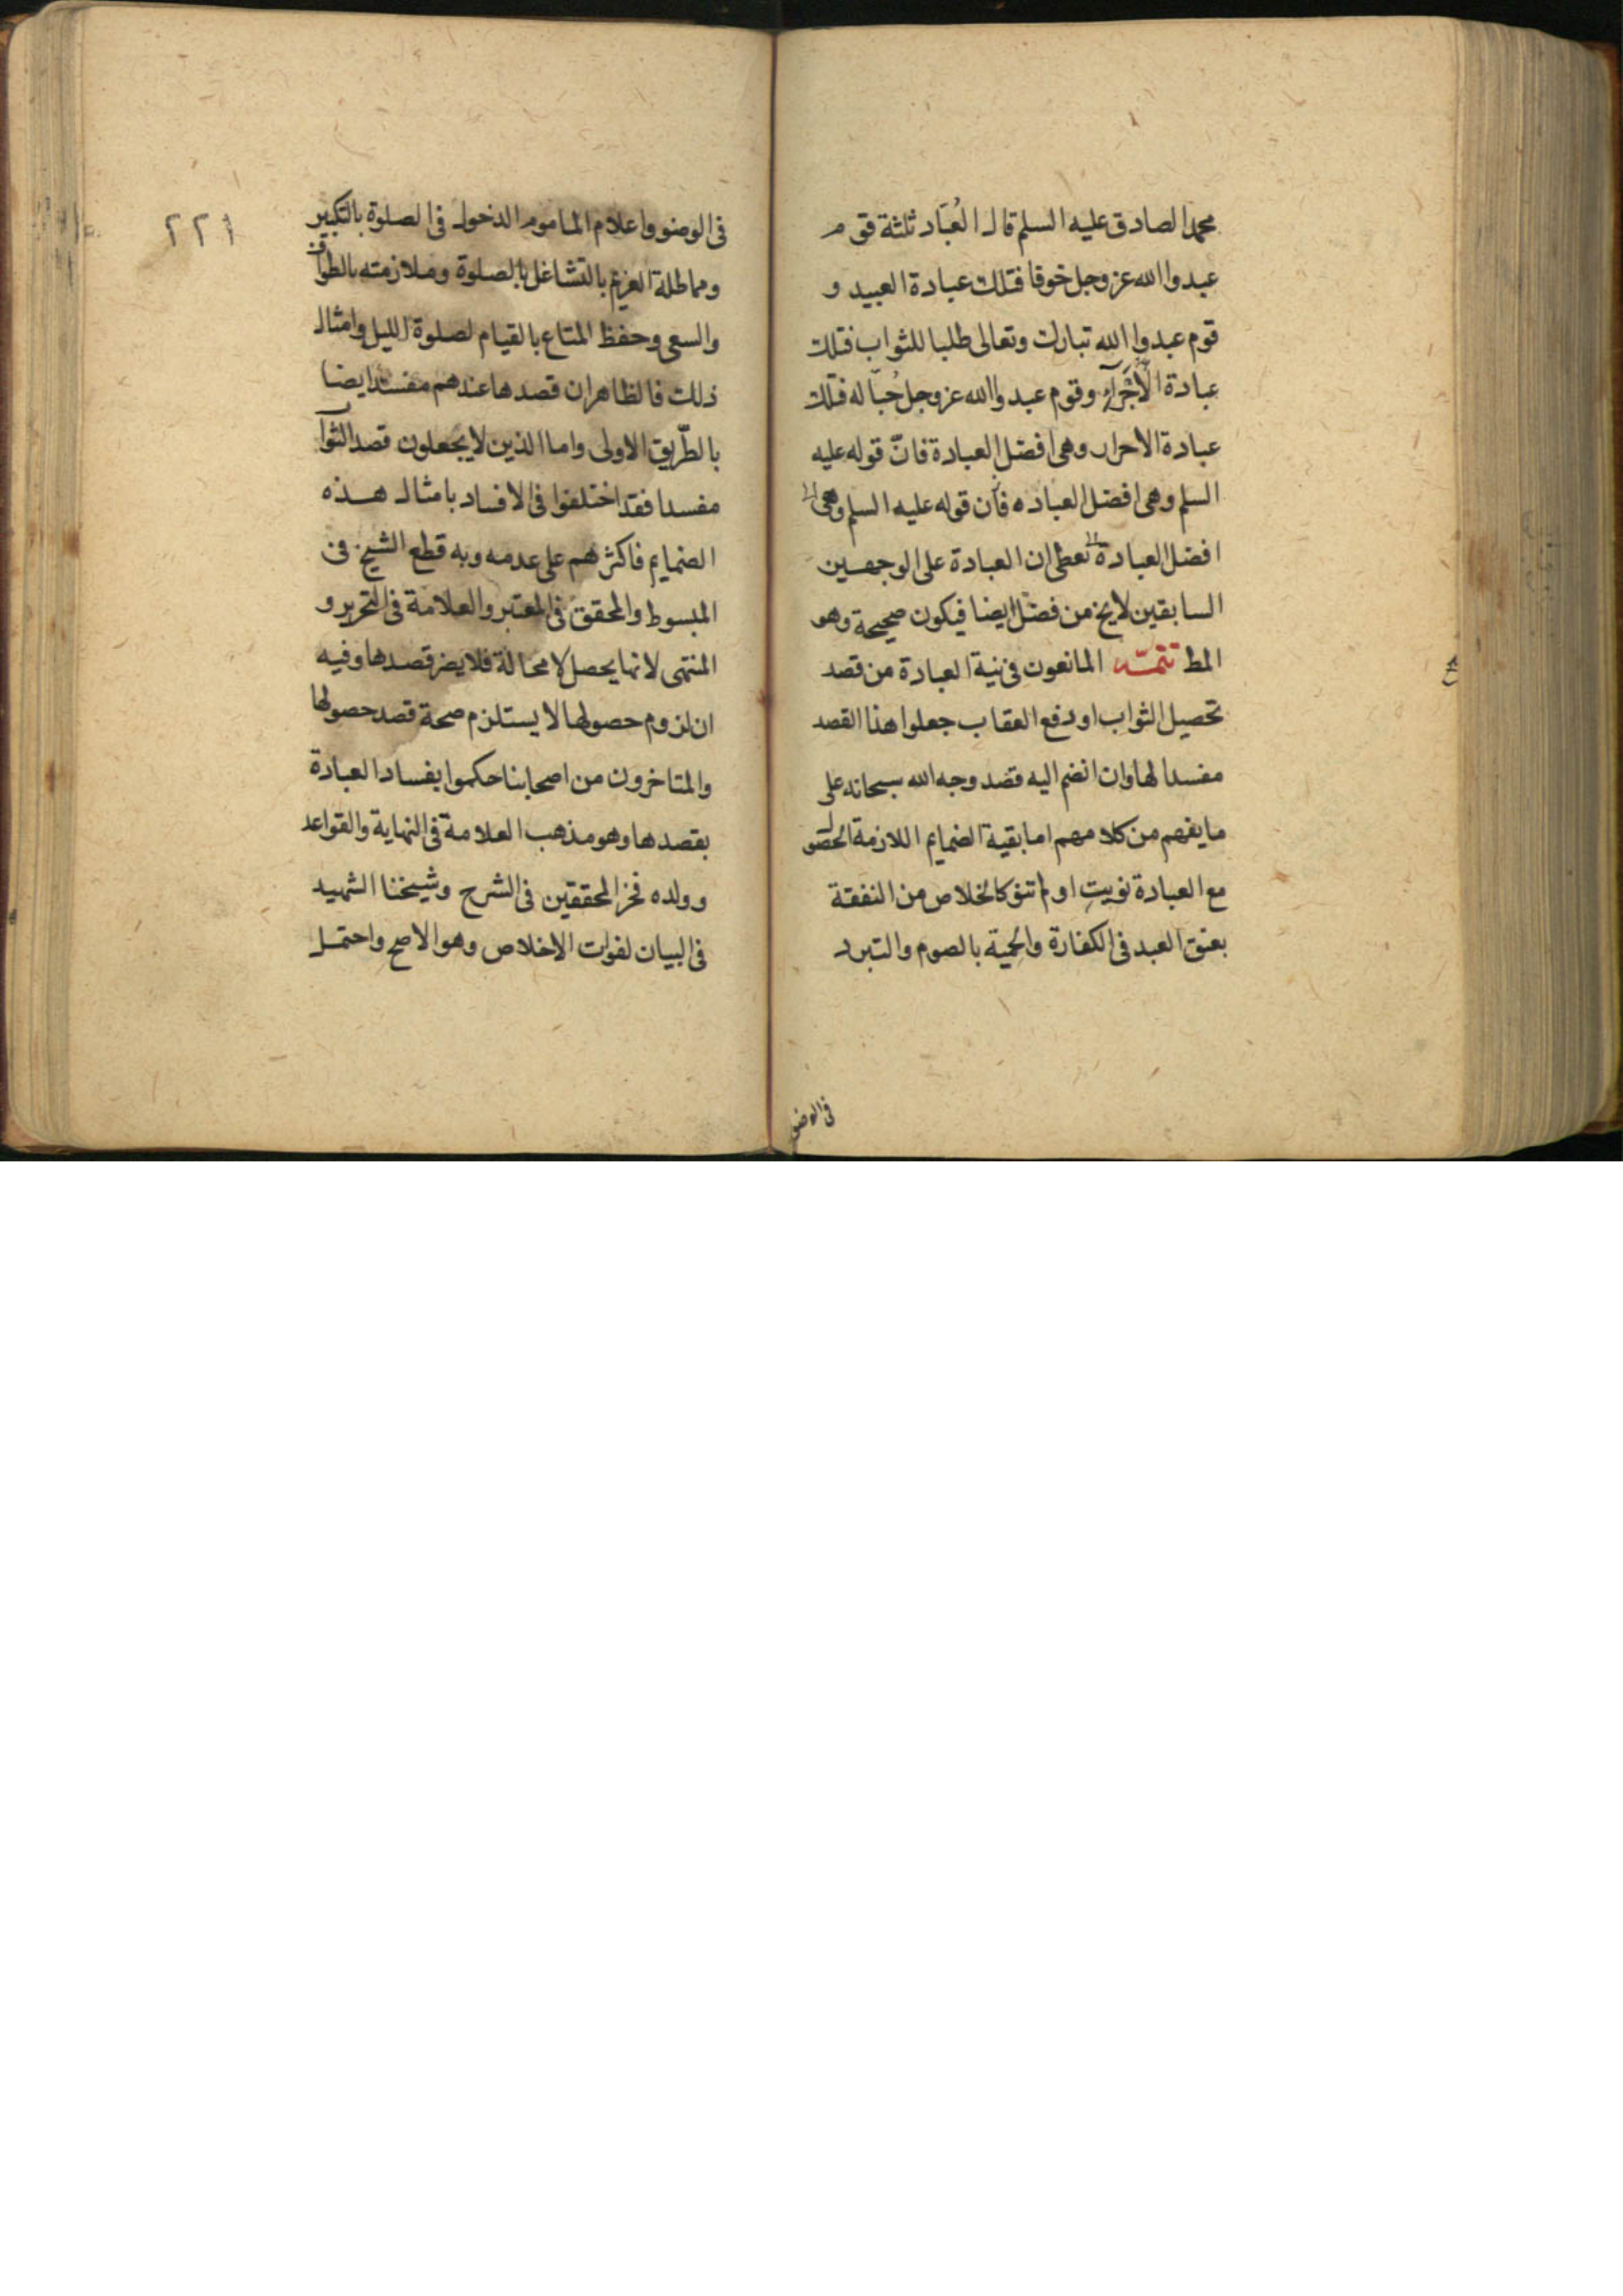 محمد الصادق عليه السلم قال العُبّاد ثلثة قوم
عبدوا الله عز وجل خوفا فتلك عبادة العبيد و
قوم عبدوا الله تبارك وتعالى طلبا للثواب فتلك
عبادة الأُجَرآءِ وقوم عبدوا الله عز وجل حُبّا له فتلك
عبادة الاحرار وهى افضل العبادة فانّ قوله عليه
السلم وهى افضل العباده فان قوله عليه السلم وهى
افضل العبادة تعطى ان العبادة على الوجهين
السابقين لا يخ من فضل ايضا فيكون صحيحة وهو
المط تتمّــه المانعون فى نية العبادة من قصد
تحصيل الثواب او دفع العقاب جعلوا هذا القصد
مفسدا لها وان انضم اليه قصد وجه الله سبحانه على
ما يفهم من كلامهم اما بقية الضمايم اللازمة الحصول
مع العبادة نويت او لم تنو كالخلاص من النفقة
بعتق العبد فى الكفارة والحمية بالصوم والتبرد
فى الوضو
٢٢١
فى الوضوء واعلام الماموم الدخول فى الصلوة بالتكبير
ومماطلة الغريم بالتشاغل بالصلوة وملازمته بالطواف
والسعى وحفظ المتاع بالقيام لصلوة الليل وامثال
ذلك فالظاهر ان قصدها عندهم مفسد ايضا
بالطّريق الاولى واما الذين لا يجعلون قصد الثوا
مفسدا فقد اختلفوا فى الافساد بامثال هــذه
الضمايم فاكثرهم على عدمه وبه قطع الشيخ فى
المبسوط والمحقق فى المعتبر والعلامة فى التحرير و
المنتهى لانها يحصل لا محالة فلا يضر قصدها وفيه
ان لزوم حصولها لا يستلزم صحة قصد حصولها
والمتاخرون من اصحابنا حكموا بفساد العبادة
بقصدها وهو مذهب العلامة فى النهاية والقواعد
وولده فخر المحققين فى الشرح وشيخنا الشهيد
فى البيان لفوات الاخلاص وهو الاصح واحتمــل